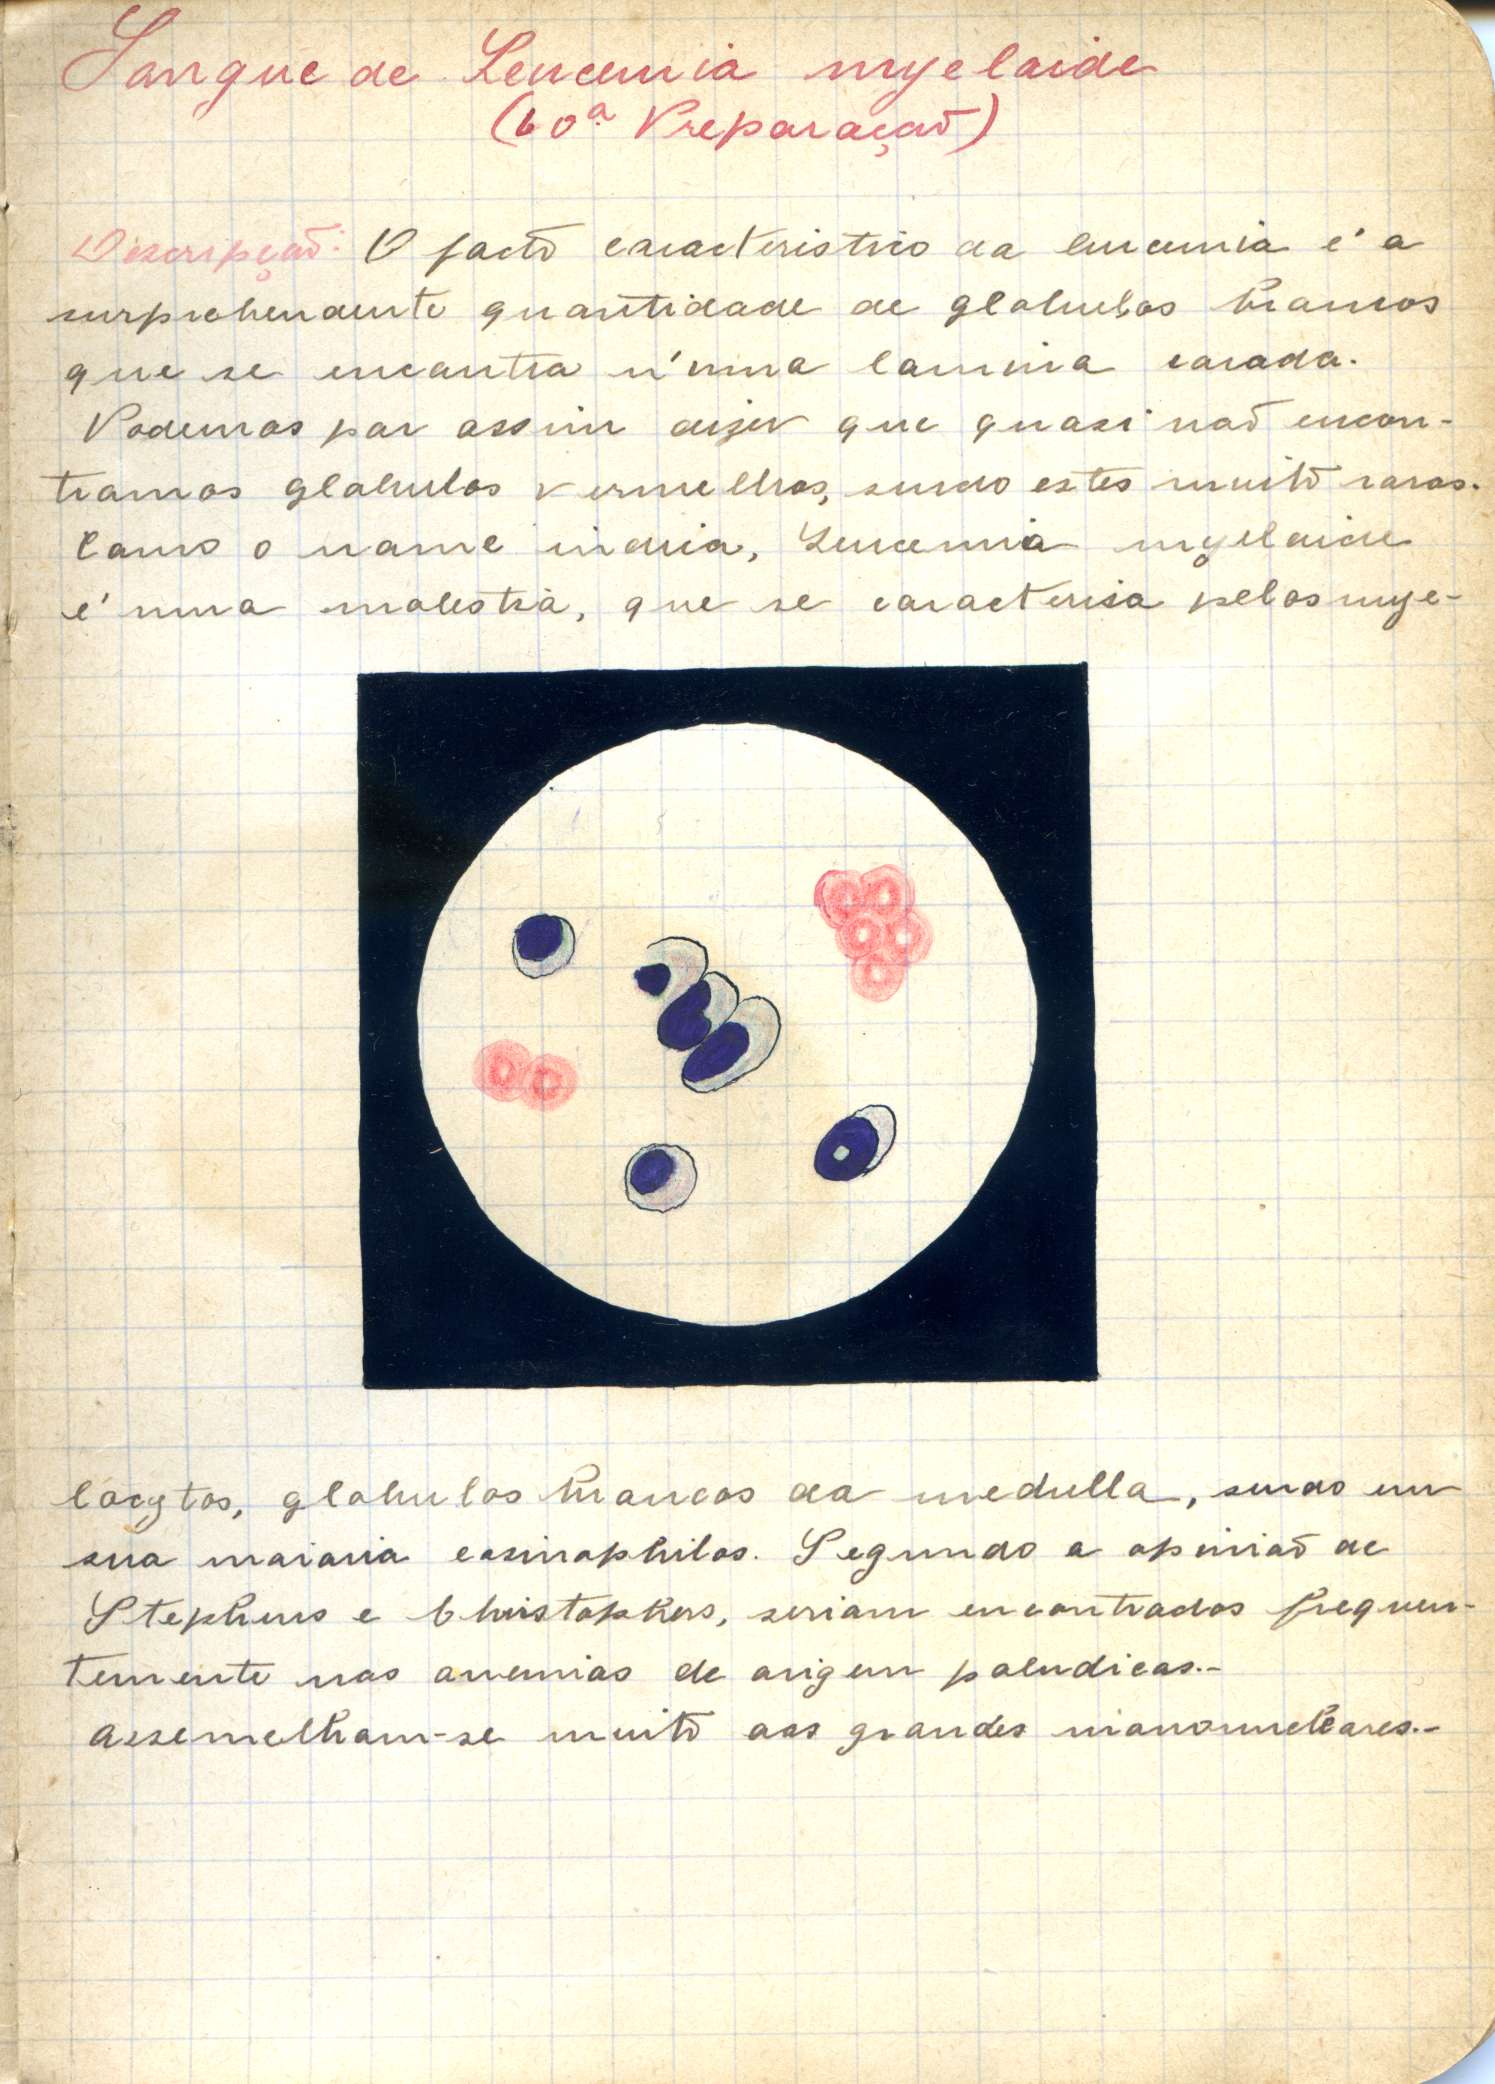 Sangue de Leucemia myeloide
(60ª Preparação)
Descripção: O facto caracteristico da leucemia é a
surprehendente quantidade de globulos brancos
que se encontra n'uma lamina corada.
Podemos por assim dizer que quasi não encon-
tramos globulos vermelhos, sendo estes muito raros.
Como o nome indica, Leucemia myeloide
é uma molestia, que se caracterisa pelos mye-
locytos, globulos brancos da medulla, sendo em
sua maioria eosinophilos. Segundo a opinião de
Stephens e Christophers, seriam encontrados frequen-
temente nas anemias de origem paludicas.-
Assemelham-se muito aos grandes mononucleares.-